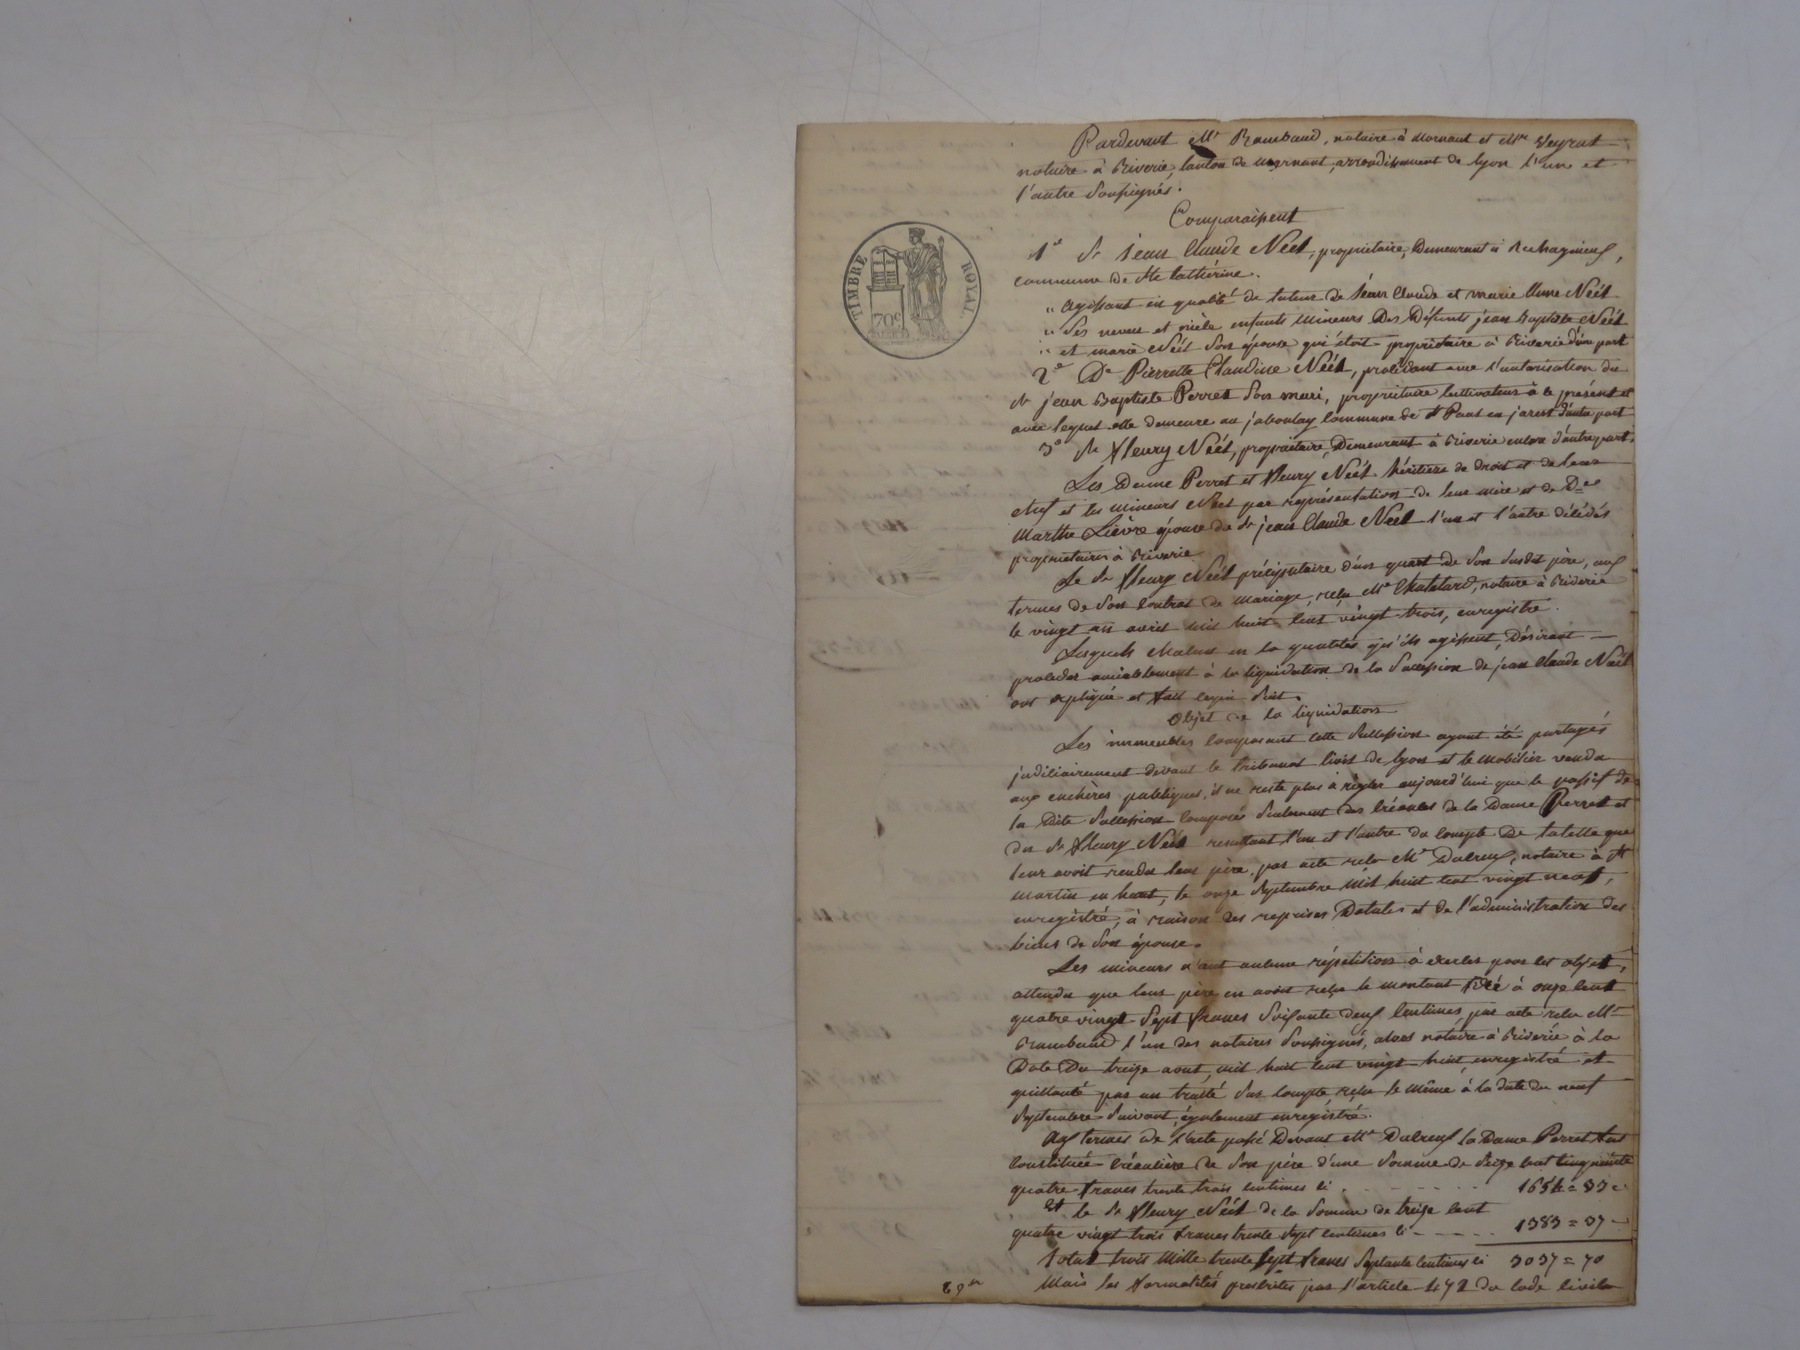 Pardevant Me Rambaud, notaire à Mornant et Mre Veyrat
notaire à Riverie, canton de Mornant, arrondissement de Lyon l'un et
l'autre soussignés.
Comparaissent
1° Sr Jean Claude Néel, propriétaire, demeurant à
commune de Ste Catherine.
" agissant en qualité de tuteur de Jean Claude et Marie Anne Néel
" ses neveu et nièce enfants mineurs des défunts Jean Baptiste Néel
" et Marie Néel son épouse qui était propriétaire à Riverie d'une part
2° De Pierrette Claudine Néel, procédant avec l'autorisation du
Sr Jean Baptiste Perret son mari, propriétaire cultivateur à ce présent et
avec lequel elle demeure au Jaboulay commune de St Paul en Jarest d'autre part
3° Sr Fleury Néel, propriétaire, demeurant à Riverie encore d'autre part.
Les Dame Perret et Fleury Néel héritiers de droit et de leur
chef et les mineurs Néel par représentation de leur mère et de De
Marthe Lièvre épouse du Sr Jean Claude Néel l'un et l'autre décédés
propriétaires à Riverie
Le Sr Fleury Néel préciputaire d'un quart de son susdit père, aux
termes de son contrat de mariage, reçu Me Chatelard, notaire à Riverie
le vingt un avril mil huit cent vingt trois, enregistré.
Lesquels en la qualité qu'ils agissent, désirant
procéder amiablement à la liquidation de la succession de Jean Claude Néel
ont expliqué et fait ce qui suit.
Objet de la liquidation
Les immeubles composant cette succession ayant été partagés
judiciairement devant le tribunal civil de Lyon et le mobilier vendu
aux enchères publiques, il ne reste plus à régler aujourd'hui que le passif de
la dite succession composée seulement des créances de la Dame Perret et
du Sr Fleury Néel résultant l'un et l'autre du compte de tutelle que
leur avait rendu leur père par acte reçu Me Dulreux, notaire à St
Martin en haut, le onze septembre mil huit cent vingt neuf,
enregistré, à raison des reprises dotales et de l'administration des
biens de son épouse.
Les mineurs n'ont aucune répétition à exercer pour cet objet,
attendu que leur père en avait reçu le montant fixé à onze cent
quatre vingt sept francs soixante deux centimes, par acte reçu Me
Rambaud l'un des notaires soussignés, alors notaire à Riverie à la
date du treize aout, mil huit cent vingt huit, enregistré et
quittancé par un traité sur compte, reçu le même à la date du neuf
septembre suivant, également enregistré.
Aux termes de l'acte passé devant Me Dulreux la Dame Perret fut
constituée créancière de son père d'une somme de seize cent cinquante
quatre francs trente trois centimes ci 1654 = 33 c
Et le Sr Fleury Néel de la somme de treize cent
quatre vingt trois francs trente sept centimes ci 1383 = 37
Total trois mille trente sept francs septante centimes ci 3037 = 70
Mais les formalités prescrites par l'article 472 du code civil
TIMBRE ROYAL
70c